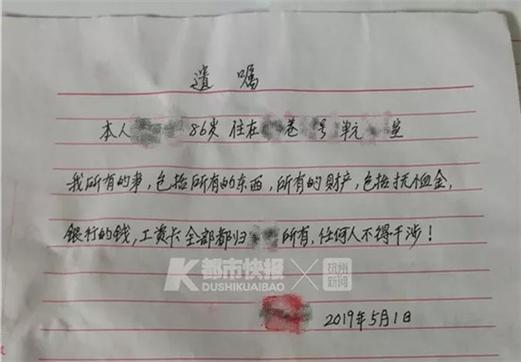 遗嘱
本人 86岁 住在 巷 号 单元 室
我所有的事,包括所有的东西,所有的财产,包括抚恤金,
银行的钱,工资卡全部都归 所有,任何人不得干涉!
K都市快报
DUSHIKUAIBAO
杭州新闻
2019年5月1日